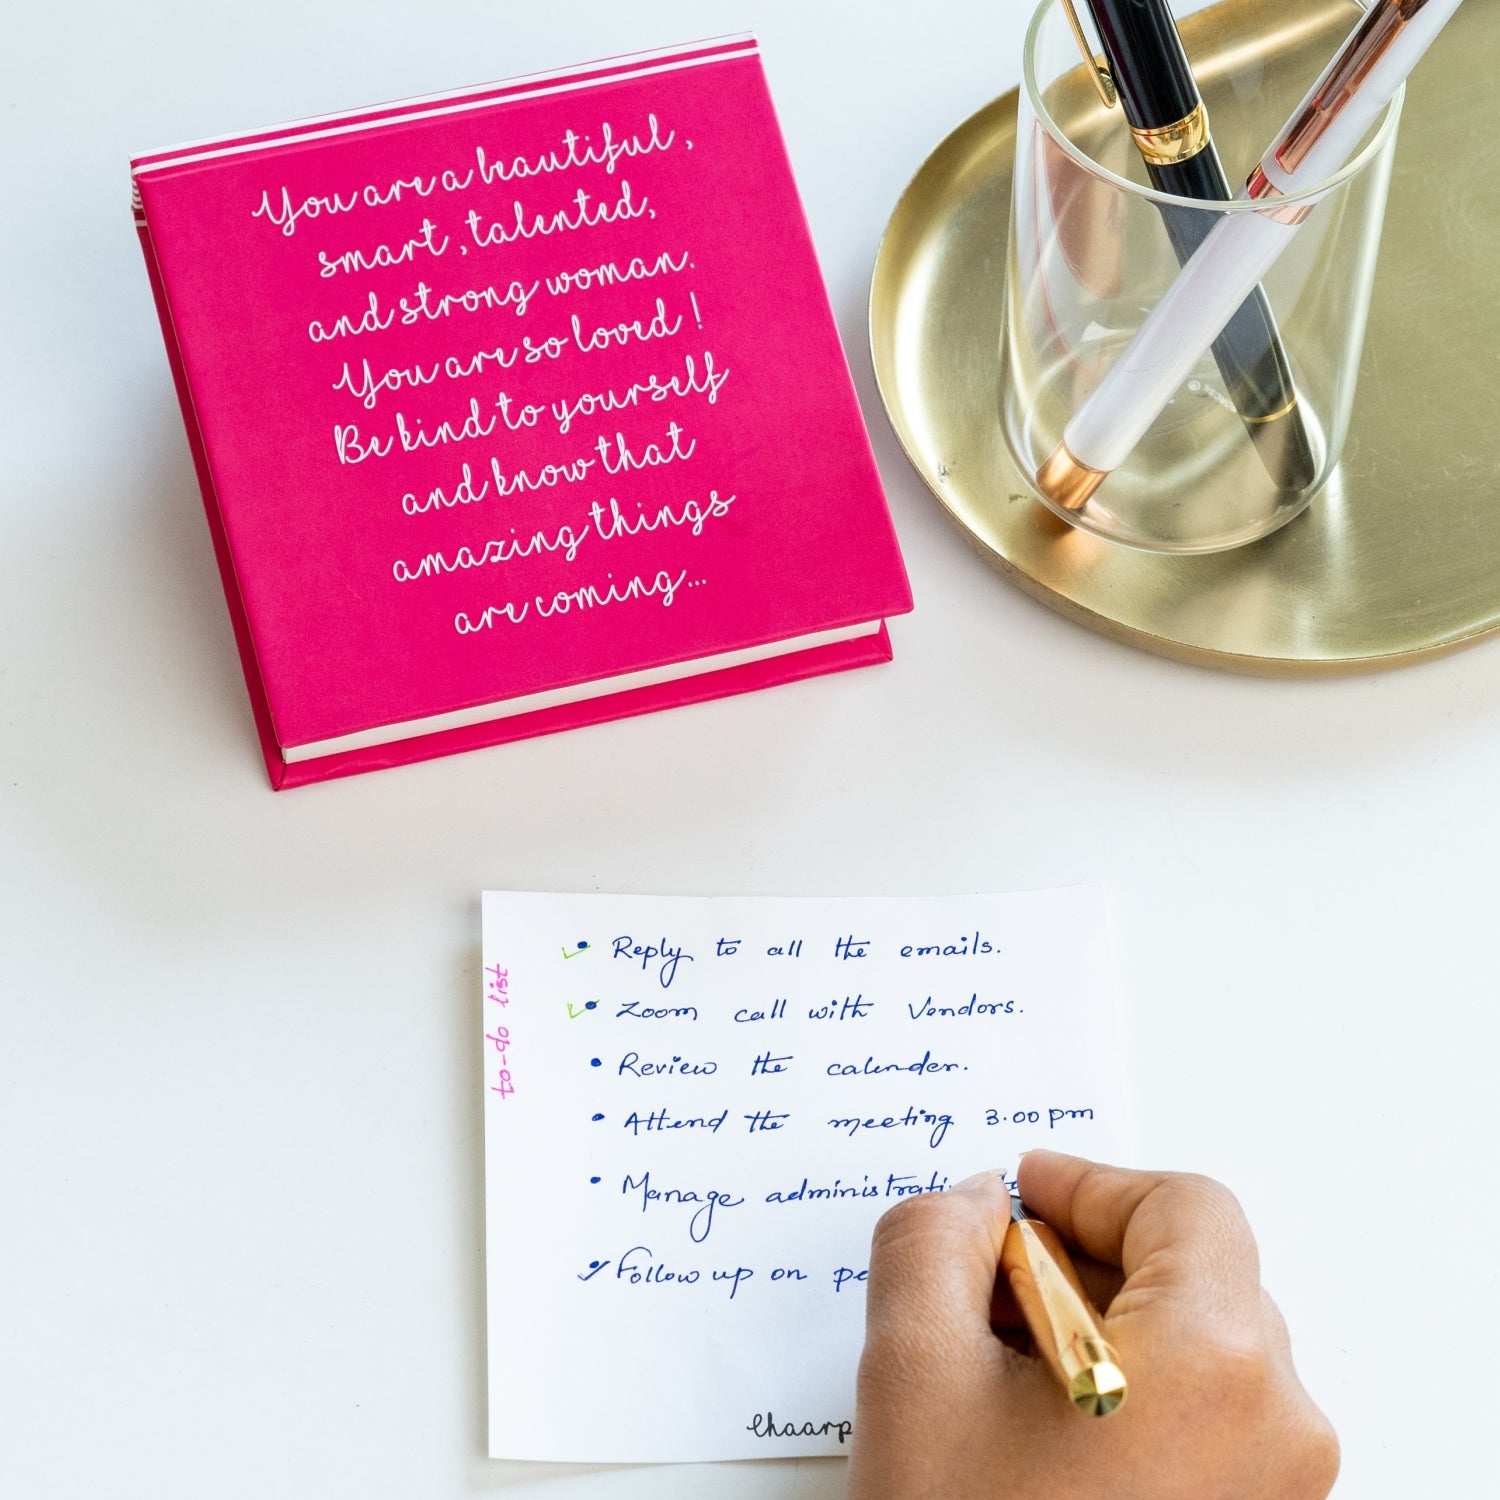 You are a beautiful,
smart, talented,
and strong woman.
You are so loved!
Be kind to yourself
and know that
amazing things
are coming...
to-do list
Reply to all the emails.
Zoom call with Vendors.
Review the calender.
Attend the meeting 3.00 pm
Manage
Follow up on